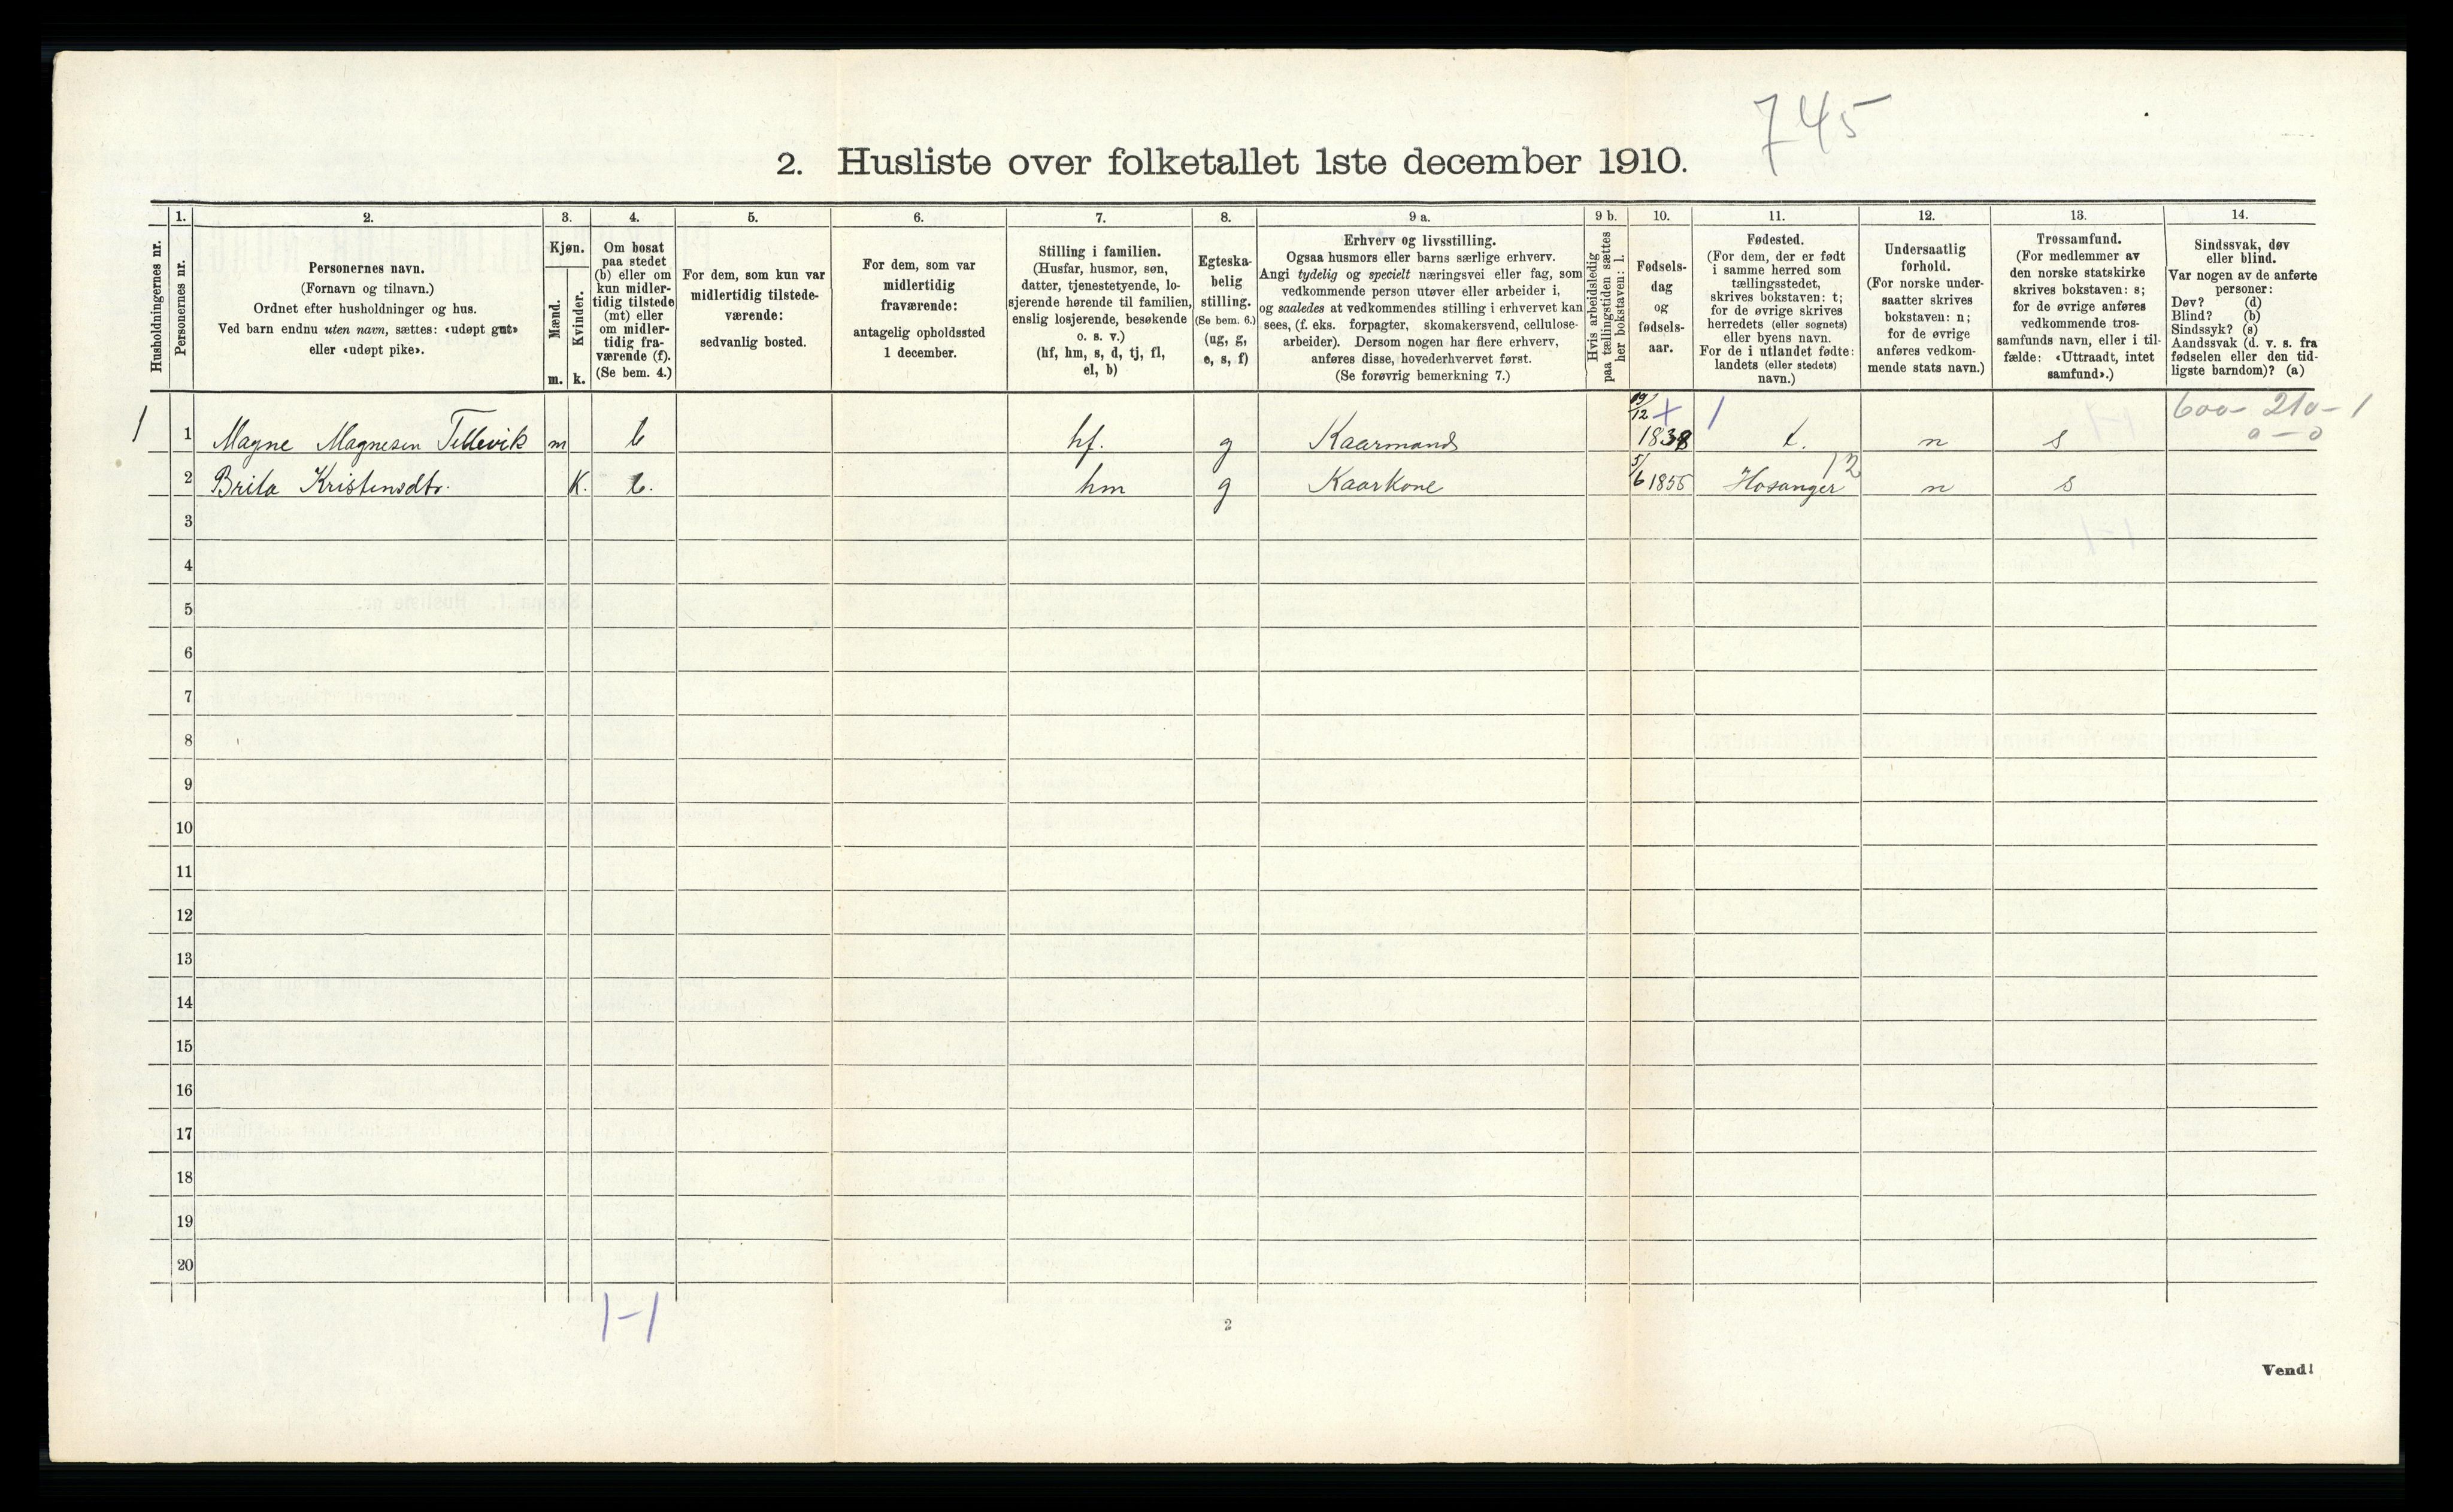 745
2. Husliste over folketallet 1ste december 1910.
Husholdningernes nr.
1.
Personernes nr.
2.
Personernes navn.
(Fornavn og tilnavn.)
Ordnet efter husholdninger og hus.
Ved barn endnu uten navn, sættes: «udøpt gut»
eller «udøpt pike».
3.
Kjøn.
Mænd.
m.
Kvinder.
k.
4.
Om bosat
paa stedet
(b) eller om
kun midler-
tidig tilstede
(mt) eller
om midler-
tidig fra-
værende (f).
(Se bem. 4.)
5.
For dem, som kun var
midlertidig tilstede-
værende:
sedvanlig bosted.
6.
For dem, som var
midlertidig
fraværende:
antagelig opholdssted
1 december.
7.
Stilling i familien.
(Husfar, husmor, søn,
datter, tjenestetyende, lo-
sjerende hørende til familien,
enslig losjerende, besøkende
o. s. v.)
(hf, hm, s, d, tj, fl,
el, b)
8.
Egteska-
belig
stilling.
(Se bem. 6.)
(ug, g,
e, s, f)
9 a.
Erhverv og livsstilling.
Ogsaa husmors eller barns særlige erhverv.
Angi tydelig og specielt næringsvei eller fag, som
vedkommende person utøver eller arbeider i,
og saaledes at vedkommendes stilling i erhvervet kan
sees, (f. eks. forpagter, skomakersvend, cellulose-
arbeider). Dersom nogen har flere erhverv,
anføres disse, hovederhvervet først.
(Se forøvrig bemerkning 7.)
9 b.
Hvis arbeidsledig
paa tællingstiden sættes
her bokstaven: l.
10.
Fødsels-
dag
og
fødsels-
aar.
11.
Fødested.
(For dem, der er født
i samme herred som
tællingsstedet,
skrives bokstaven: t;
for de øvrige skrives
herredets (eller sognets)
eller byens navn.
For de i utlandet fødte:
landets (eller stedets)
navn.)
12.
Undersaatlig
forhold.
(For norske under-
saatter skrives
bokstaven: n;
for de øvrige
anføres vedkom-
mende stats navn.)
13.
Trossamfund.
(For medlemmer av
den norske statskirke
skrives bokstaven: s;
for de øvrige anføres
vedkommende tros-
samfunds navn, eller i til-
fælde: «Uttraadt, intet
samfund».)
14.
Sindssvak, døv
eller blind.
Var nogen av de anførte
personer:
Døv? (d)
Blind? (b)
Sindssyk? (s)
Aandssvak (d. v. s. fra
fødselen eller den tid-
ligste barndom)? (a)
1 1 Magne Magnesen Tellevik m b hf. g Kaarmand 1838 1 t. n s 600- 210-1
0-0
2 Brita Kristensdtr. K. b. hm g Kaarkone 5/6 1855 Hosanger 12 n s
3
4
5
6
7
8
9
10
11
12
13
14
15
16
17
18
19
20
1-1
2
Vend!